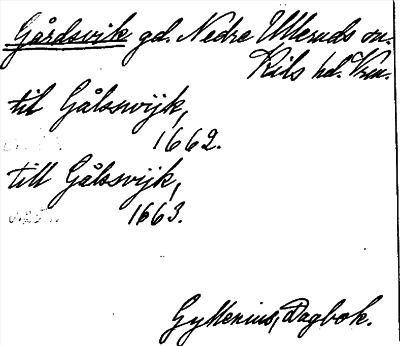 Gårdsvik gd. Nedre Ulleruds sn.
Kils hd. Vrm.
til Gålsswijk,
1662.
till Gålsvijk,
1663.
Gyllenius, Dagbok.